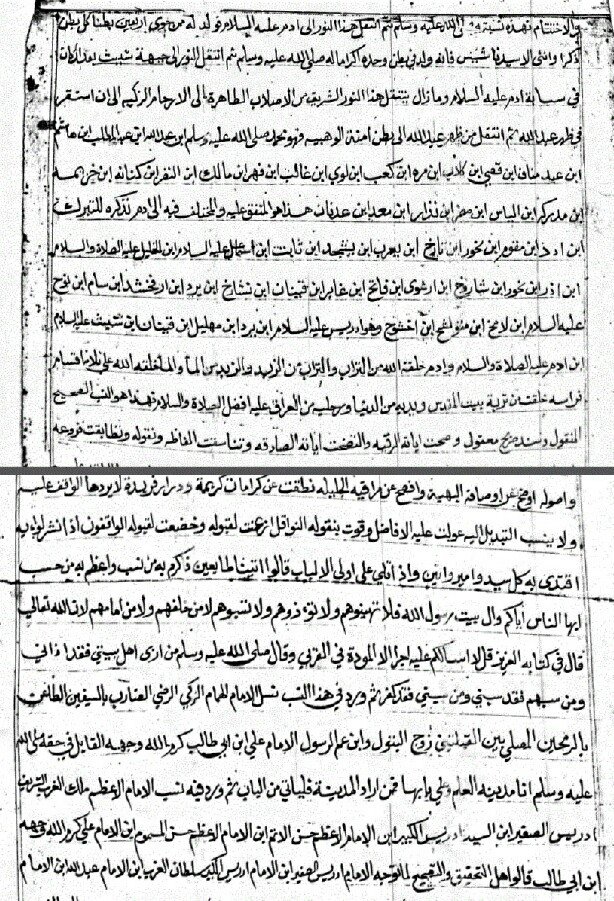 والاختتام فهذه نسبته صلى الله عليه وسلم ثم انتقل هذا النور الى ادم عليه السلام فولد له من حوى اربعين بطنا كل بطن
ذكرا وانثى الا سيدنا شيث فانه ولد في بطن وحده كراما له صلى الله عليه وسلم ثم انتقل النور الى جبهة شيث بعد ان كان
في سبابة ادم عليه السلام وما زال ينتقل هذا النور الشريف من الاصلاب الطاهرة الى الارحام الزكيه الى ان استقر
في ظهر عبد الله ثم انتقل من ظهر عبد الله الى بطن امنة الوهبيه فهو محمد صلى الله عليه وسلم ابن عبد الله ابن عبد المطلب ابن هاشم
ابن عبد مناف ابن قصي ابن كلاب ابن مره ابن كعب ابن لوي ابن غالب ابن فهر ابن مالك ابن النضر ابن كنانه ابن خزيمه
ابن مدركه ابن الياس ابن مضر ابن نزار ابن معد ابن عدنان هذا هو المتفق عليه والمختلف فيه الى ادم نذكره للتبرك
ابن ادد ابن مقوم ابن نحور ابن تارخ ابن يعرب ابن يشجد ابن ثابت ابن اسمعيل عليه السلام ابن الخليل عليه الصلاة والسلام
ابن اذر ابن نحور ابن شاروخ ابن ارغوى ابن فالخ ابن عابر ابن قينان ابن تشاخ ابن يرد ابن ارفخشد ابن سام ابن نوح
عليه السلام ابن لامخ ابن متوشلخ ابن اخنوخ وهو ادريس عليه السلام ابن يرد ابن مهليل ابن قينان ابن شيث عليه السلام
ابن ادم عليه الصلاة والسلام وادم خلقه الله من التراب والتراب من الزبد والزبد من الماء والماء خلقه الله على ثلاثة اقسام
فراسه خلقت من تربة بيت المقدس ويديه من الدنيا ورجليه من العراق عليه افضل الصلاة والسلام فهذا هو النسب الصحيح
المنقول وسند صريح معقول وصحت اياته المرتبه واتضحت اياته الصادقه وتناسقت الفاظه ونقوله وتطابقت فروعه
واصوله اوضح عن اوصافه البهية وافصح عن مراقيه الجليله نطقت عن كرامات كريمة ودرار فريدة لا يردها الواقف عليه
ولا ينسب التبديل اليه عولت عليه الافاضل وقوت بنقوله النواقل اذعنت لقبوله وخضعت لقبوله الواقفون اذا نشر لوايه
اقتدى به كل سيد وامير وامين واذا تلى على اولي الالباب قالوا اتينا طايعين ذكرم به من نسب واعظم به من حسب
ايها الناس اياكم وال بيت رسول الله فلا تهينوهم ولا تؤذوهم ولا تسبوهم لا من خلفهم ولا من امامهم لان الله تعالى
قال في كتابه العزيز قل لا اسالكم عليه اجرا الا المودة في القربى وقال صلى الله عليه وسلم من اذى اهل بيتي فقد اذاني
ومن سبهم فقد سبني ومن سبني فقد كفر ثم ورد في هذا النسب نسل الامام الهمام الزكي الرضي الضارب بالسيفين الطاعن
بالرمحين المصلي بين القبلتين زوج البتول وابن عم الرسول الامام علي ابن ابي طالب كرم الله وجهه القايل في حقه صلى الله
عليه وسلم انا مدينه العلم وعلي بابها فمن اراد المدينة فلياتي من الباب ثم ورد فيه نسب الامام الاعظم ملك الغرب الشريف
ادريس الصغير ابن السيد ادريس الكبير ابن الامام الاعظم حسن الانور ابن الامام الاعظم حسن المسموم ابن الامام علي كرم الله وجهه
ابن ابي طالب قالوا اهل التحقيق والتصحيح الامام ادريس الصغير ابن الامام ادريس الكبير سلطان الغرب ابن الامام عبد الله ابن الامام